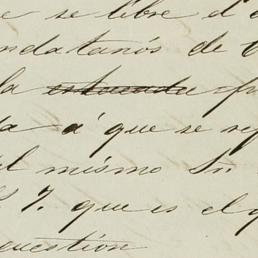 e se libre el
ndatarios de
la
a á que se re
el mismo Sr.
S. 7. que es el q
cuestion